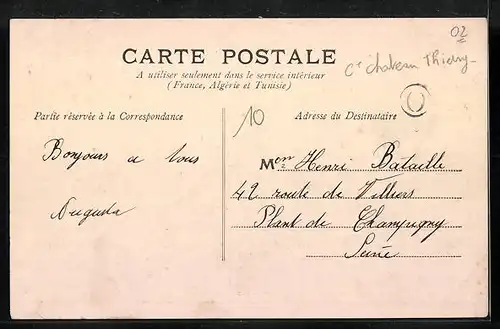 02
Ct Chateau Thierry
CARTE POSTALE
A utiliser seulement dans le service intérieur
(France, Algérie et Tunisie)
Partie réservée à la Correspondance
10
Adresse du Destinataire
Bonjours a tous
Augusta
Men Henri Bataille
42 route de Villiers
Plant de Champigny
Seine